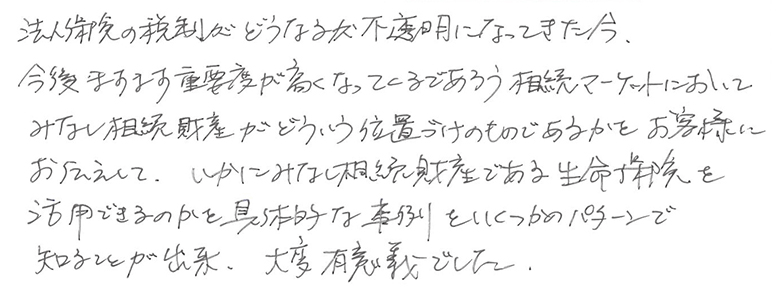 法人保険の税制がどうなるか不透明になってきた今、
今後ますます重要度が高くなってくるであろう相続マーケットにおいて
みなし相続財産がどういう位置づけのものであるかをお客様に
お伝えして、いかにみなし相続財産である生命保険を
活用できるのかを具体的な事例をいくつかのパターンで
知ることが出来、大変有意義でした。